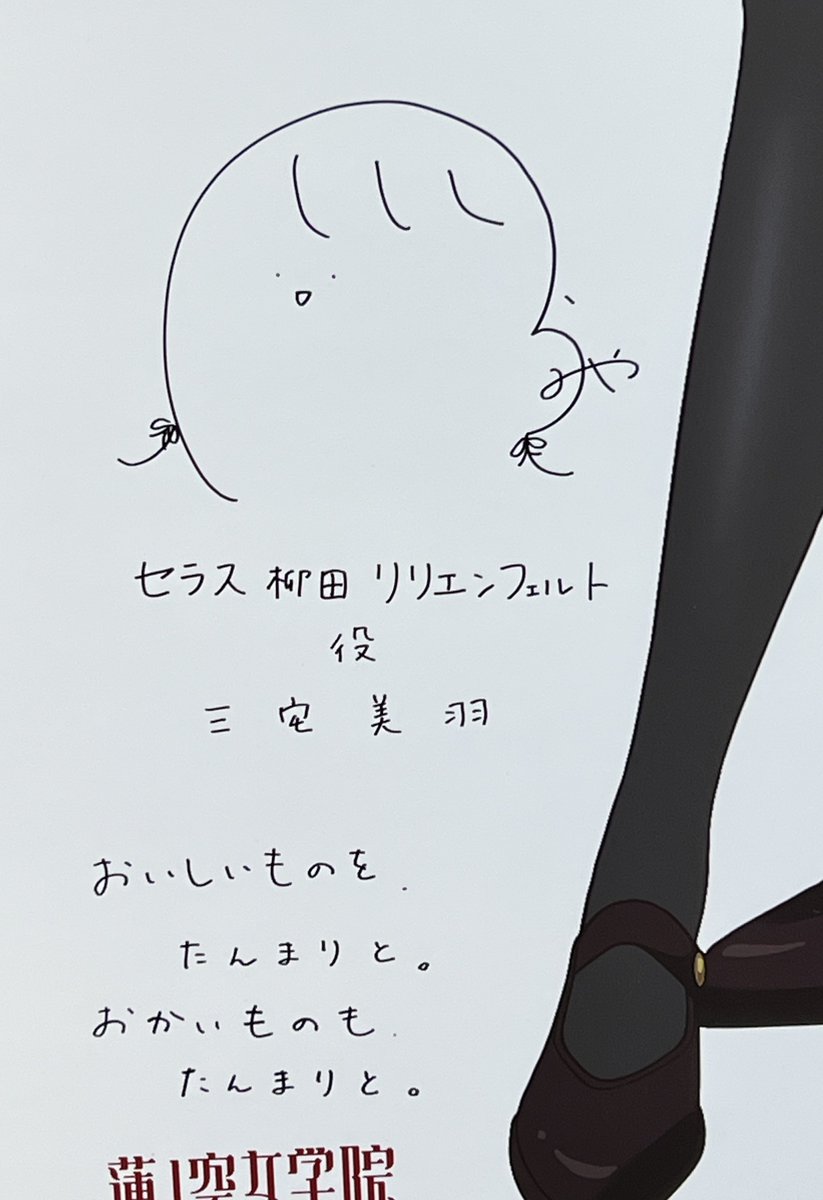 みや
セラス 柳田 リリエンフェルト
役
三宅美羽
おいしいものを
たんまりと。
おかいものも
たんまりと。
蓮ノ空女学院